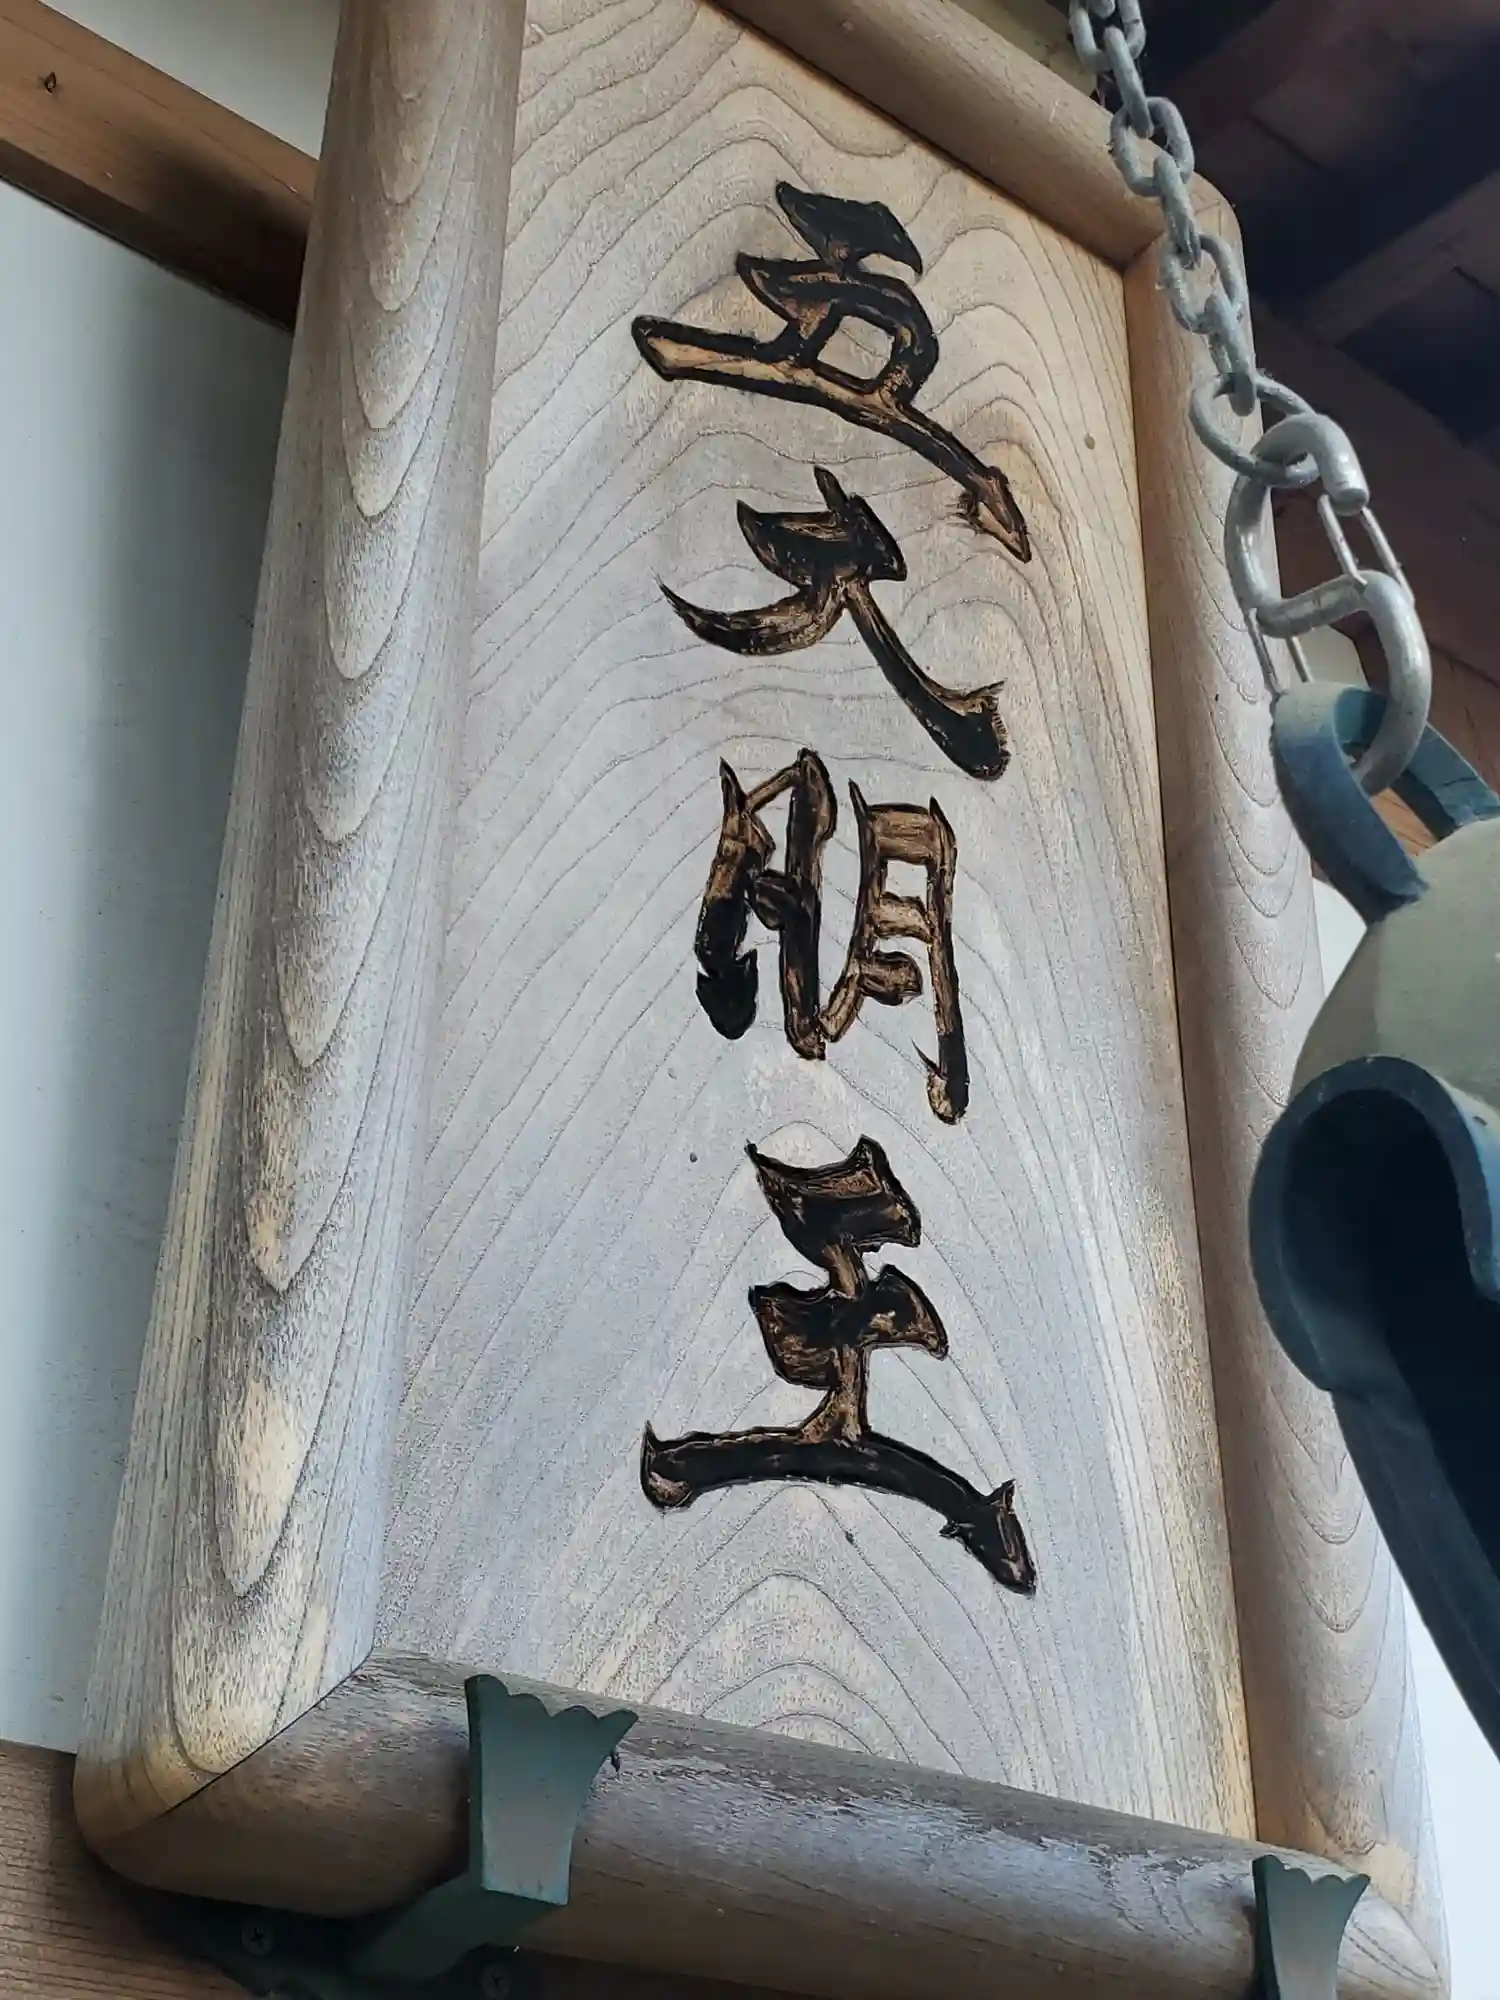 五大明王